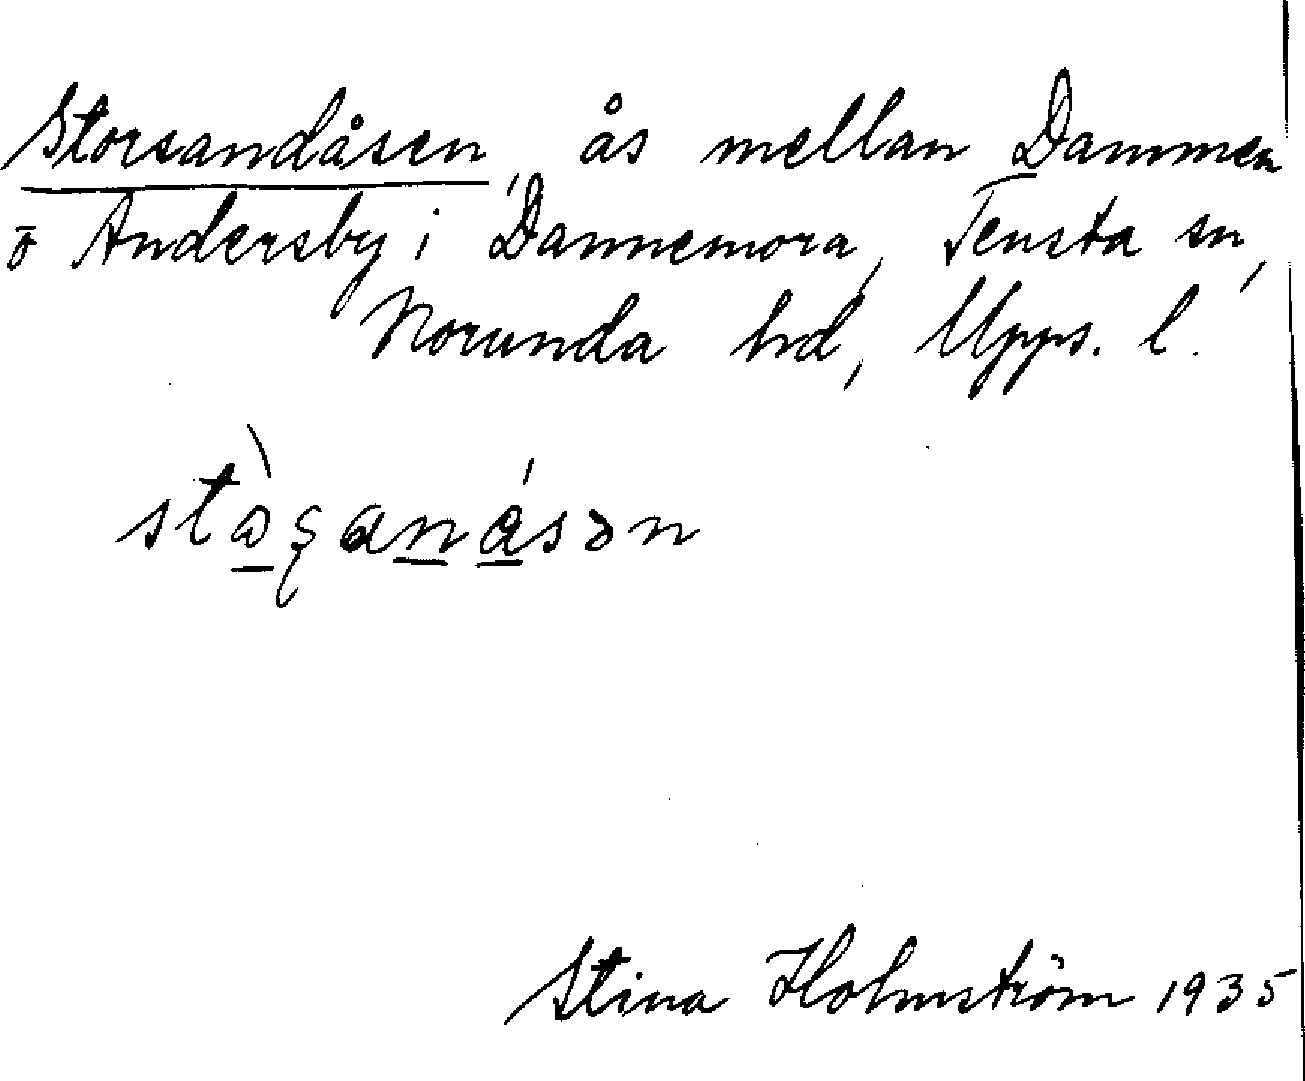 Storsandåsen, ås mellan Dammen
o Andersby i Dannemora, Tensta sn,
Norunda hd, Upps. l.
Stina Holmström 1935